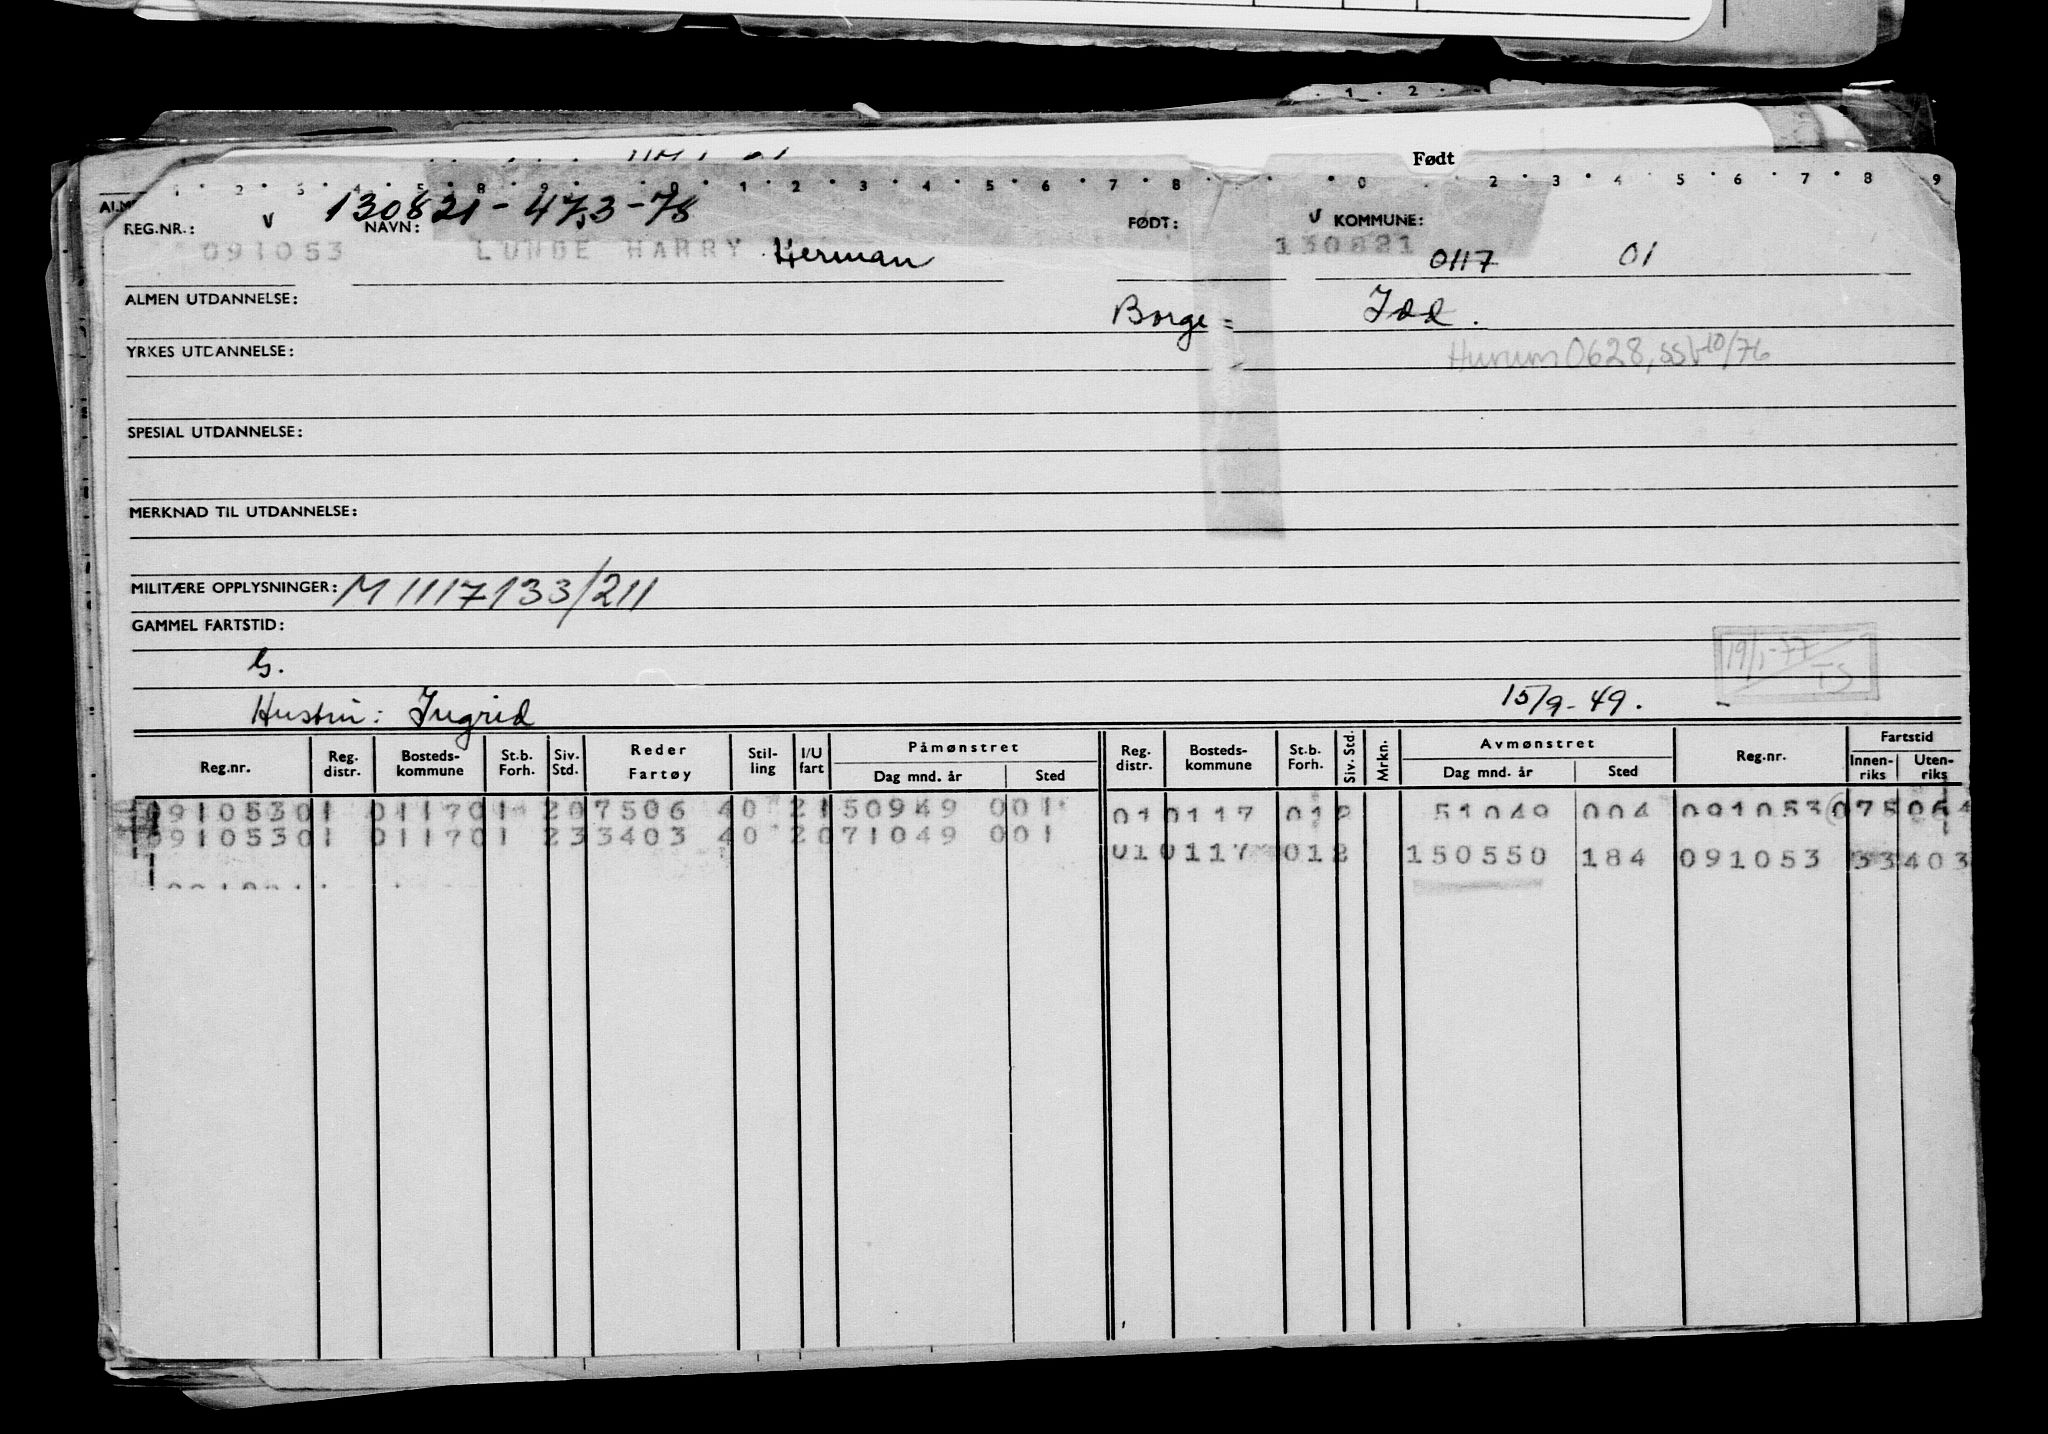 1 . 2 .
Født
REG.NR.: v 130821-47,3-78
NAVN: FØDT: v KOMMUNE:
091053 LUNDE HARRY Herman 130821 0117 01
ALMEN UTDANNELSE: Borge = Idd.
YRKES UTDANNELSE: Hurum 0628, SSV 10/76
SPESIAL UTDANNELSE:
MERKNAD TIL UTDANNELSE:
MILITÆRE OPPLYSNINGER: M 1117133/211
GAMMEL FARTSTID:
G. 19/1-77 TS
Hustru: Ingrid 15/9-49.
Reg.nr. Reg. distr. Bosteds-kommune St.b. Forh. Siv. Std. Reder Fartøy Stil-ling I/U fart Påmønstret Dag mnd. år Sted Reg. distr. Bosteds-kommune St.b. Forh. Siv. Std. Mrkn. Avmønstret Dag mnd. år Sted Reg.nr. Fartstid Innen-riks Uten-riks
09105301 011701 207506 40 2150949 001 010117 012 51049 004 091053 075064
09105301 011701 233403 40 2071049 001 010117 012 150550 184 091053 33403